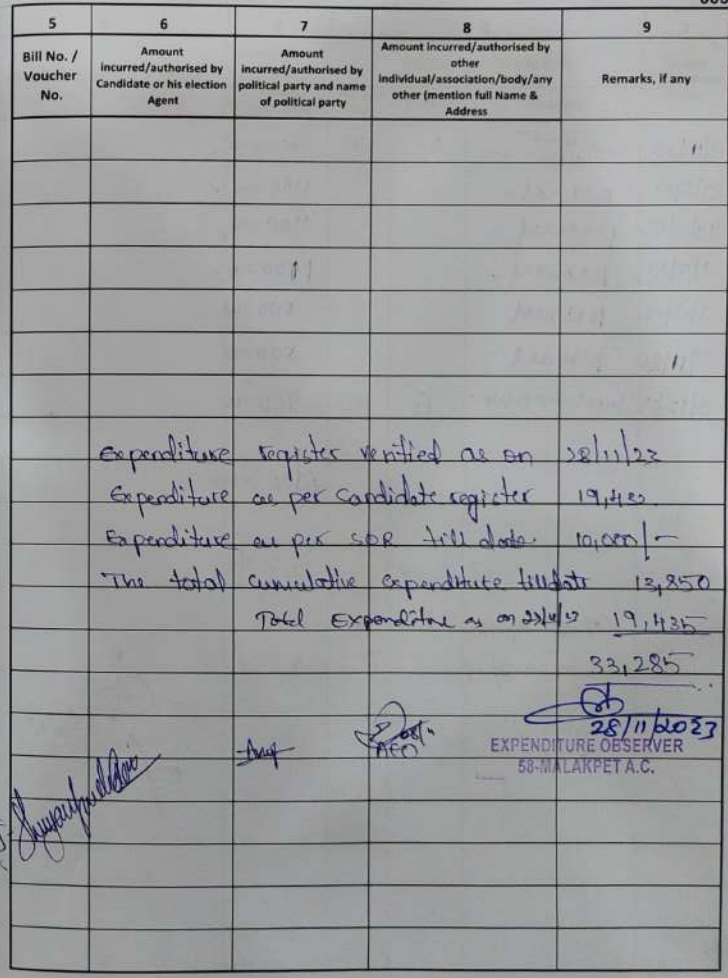 5 6 7 8 9
Bill No. / Voucher No.
Amount incurred/authorised by Candidate or his election Agent
Amount incurred/authorised by political party and name of political party
Amount incurred/authorised by other individual/association/body/any other (mention full Name & Address
Remarks, if any
Expenditure register verified as on 28/11/23
Expenditure as per Candidate register
Expenditure as per SOR till date 10,000/-
The total cumulative expenditure tilldate 13,850
Total Expenditure as on 19,435
33,285
28/11/2023
AEO
EXPENDITURE OBSERVER
58-MALAKPET A.C.